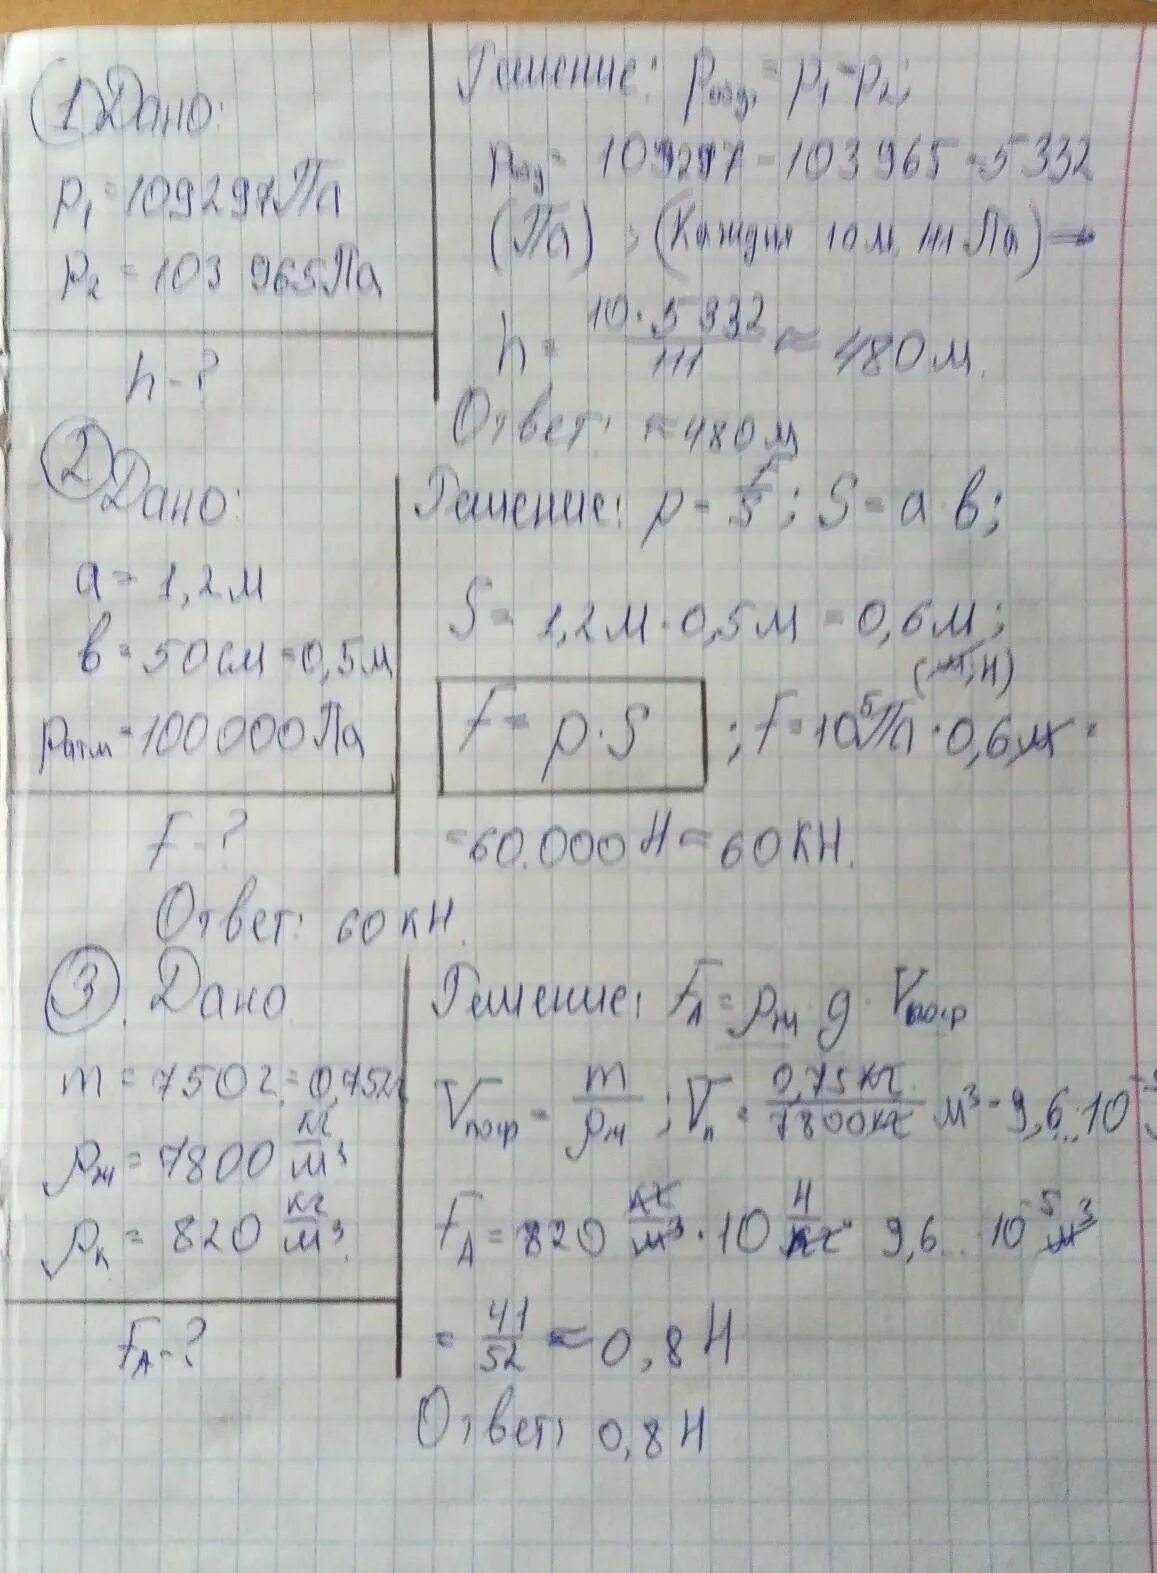 1. Дано:
p₁ = 109297 Па
p₂ = 103 965 Па
h - ?
Решение: p возд. = p₁ - p₂;
p возд = 109297 - 103 965 = 5332
(Па) ; (Каждые 10 м. 111 Па) →
h = 10 · 5332 / 111 ≈ 480 м.
Ответ: ≈ 480 м
2 Дано:
a = 1,2 м
в = 50 см = 0,5 м
p атм = 100 000 Па
F - ?
Решение: p = F/S ; S = a · в;
S = 1,2 м · 0,5 м = 0,6 м;
F = p · S ; F = 10⁵ Па · 0,6 м =
= 60.000 Н = 60 кН.
Ответ: 60 кН.
3. Дано
m = 750 г = 0,75
ρж = 7800 кг/м³
ρк = 820 кг/м³.
FА - ?
Решение: FА = ρж · g · Vпогр
Vпогр = m/ρж ; Vп = 0,75 кг / 7800 кг м³ = 9,6 · 10⁻⁵
FА = 820 кг/м³ · 10 Н/кг · 9,6 · 10⁻⁵ м³
= 41/52 ≈ 0,8 Н
Ответ: 0,8 Н